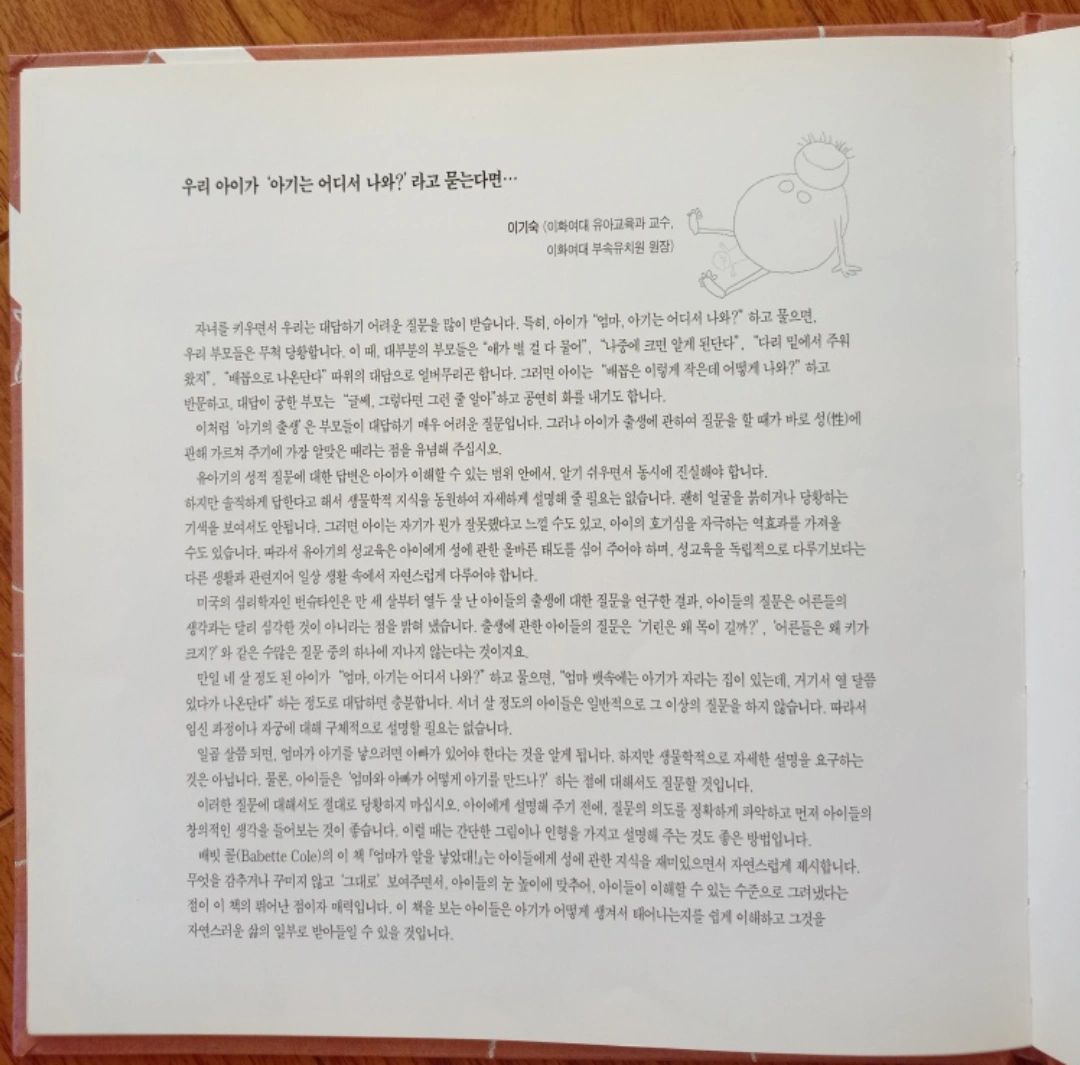 우리 아이가 '아기는 어디서 나와?' 라고 묻는다면…
이기숙 (이화여대 유아교육과 교수,
이화여대 부속유치원 원장)
자녀를 키우면서 우리는 대답하기 어려운 질문을 많이 받습니다. 특히, 아이가 "엄마, 아기는 어디서 나와?" 하고 물으면,
우리 부모들은 무척 당황합니다. 이 때, 대부분의 부모들은 "얘가 별 걸 다 물어", "나중에 크면 알게 된단다", "다리 밑에서 주워
왔지", "배꼽으로 나온단다" 따위의 대답으로 얼버무리곤 합니다. 그러면 아이는 "배꼽은 이렇게 작은데 어떻게 나와?" 하고
반문하고, 대답이 궁한 부모는 "글쎄, 그렇다면 그런 줄 알아"하고 공연히 화를 내기도 합니다.
이처럼 '아기의 출생'은 부모들이 대답하기 매우 어려운 질문입니다. 그러나 아이가 출생에 관하여 질문을 할 때가 바로 성(性)에
관해 가르쳐 주기에 가장 알맞은 때라는 점을 유념해 주십시오.
유아기의 성적 질문에 대한 답변은 아이가 이해할 수 있는 범위 안에서, 알기 쉬우면서 동시에 진실해야 합니다.
하지만 솔직하게 답한다고 해서 생물학적 지식을 동원하여 자세하게 설명해 줄 필요는 없습니다. 괜히 얼굴을 붉히거나 당황하는
기색을 보여서도 안됩니다. 그러면 아이는 자기가 뭔가 잘못했다고 느낄 수도 있고, 아이의 호기심을 자극하는 역효과를 가져올
수도 있습니다. 따라서 유아기의 성교육은 아이에게 성에 관한 올바른 태도를 심어 주어야 하며, 성교육을 독립적으로 다루기보다는
다른 생활과 관련지어 일상 생활 속에서 자연스럽게 다루어야 합니다.
미국의 심리학자인 번슈타인은 만 세 살부터 열두 살 난 아이들의 출생에 대한 질문을 연구한 결과, 아이들의 질문은 어른들의
생각과는 달리 심각한 것이 아니라는 점을 밝혀 냈습니다. 출생에 관한 아이들의 질문은 '기린은 왜 목이 길까?', '어른들은 왜 키가
크지?'와 같은 수많은 질문 중의 하나에 지나지 않는다는 것이지요.
만일 네 살 정도 된 아이가 "엄마, 아기는 어디서 나와?" 하고 물으면, "엄마 뱃속에는 아기가 자라는 집이 있는데, 거기서 열 달쯤
있다가 나온단다" 하는 정도로 대답하면 충분합니다. 서너 살 정도의 아이들은 일반적으로 그 이상의 질문을 하지 않습니다. 따라서
임신 과정이나 자궁에 대해 구체적으로 설명할 필요는 없습니다.
일곱 살쯤 되면, 엄마가 아기를 낳으려면 아빠가 있어야 한다는 것을 알게 됩니다. 하지만 생물학적으로 자세한 설명을 요구하는
것은 아닙니다. 물론, 아이들은 '엄마와 아빠가 어떻게 아기를 만드나?' 하는 점에 대해서도 질문할 것입니다.
이러한 질문에 대해서도 절대로 당황하지 마십시오. 아이에게 설명해 주기 전에, 질문의 의도를 정확하게 파악하고 먼저 아이들의
창의적인 생각을 들어보는 것이 좋습니다. 이럴 때는 간단한 그림이나 인형을 가지고 설명해 주는 것도 좋은 방법입니다.
배빗 콜(Babette Cole)의 이 책 『엄마가 알을 낳았대!』는 아이들에게 성에 관한 지식을 재미있으면서 자연스럽게 제시합니다.
무엇을 감추거나 꾸미지 않고 '그대로' 보여주면서, 아이들의 눈 높이에 맞추어, 아이들이 이해할 수 있는 수준으로 그려냈다는
점이 이 책의 뛰어난 점이자 매력입니다. 이 책을 보는 아이들은 아기가 어떻게 생겨서 태어나는지를 쉽게 이해하고 그것을
자연스러운 삶의 일부로 받아들일 수 있을 것입니다.